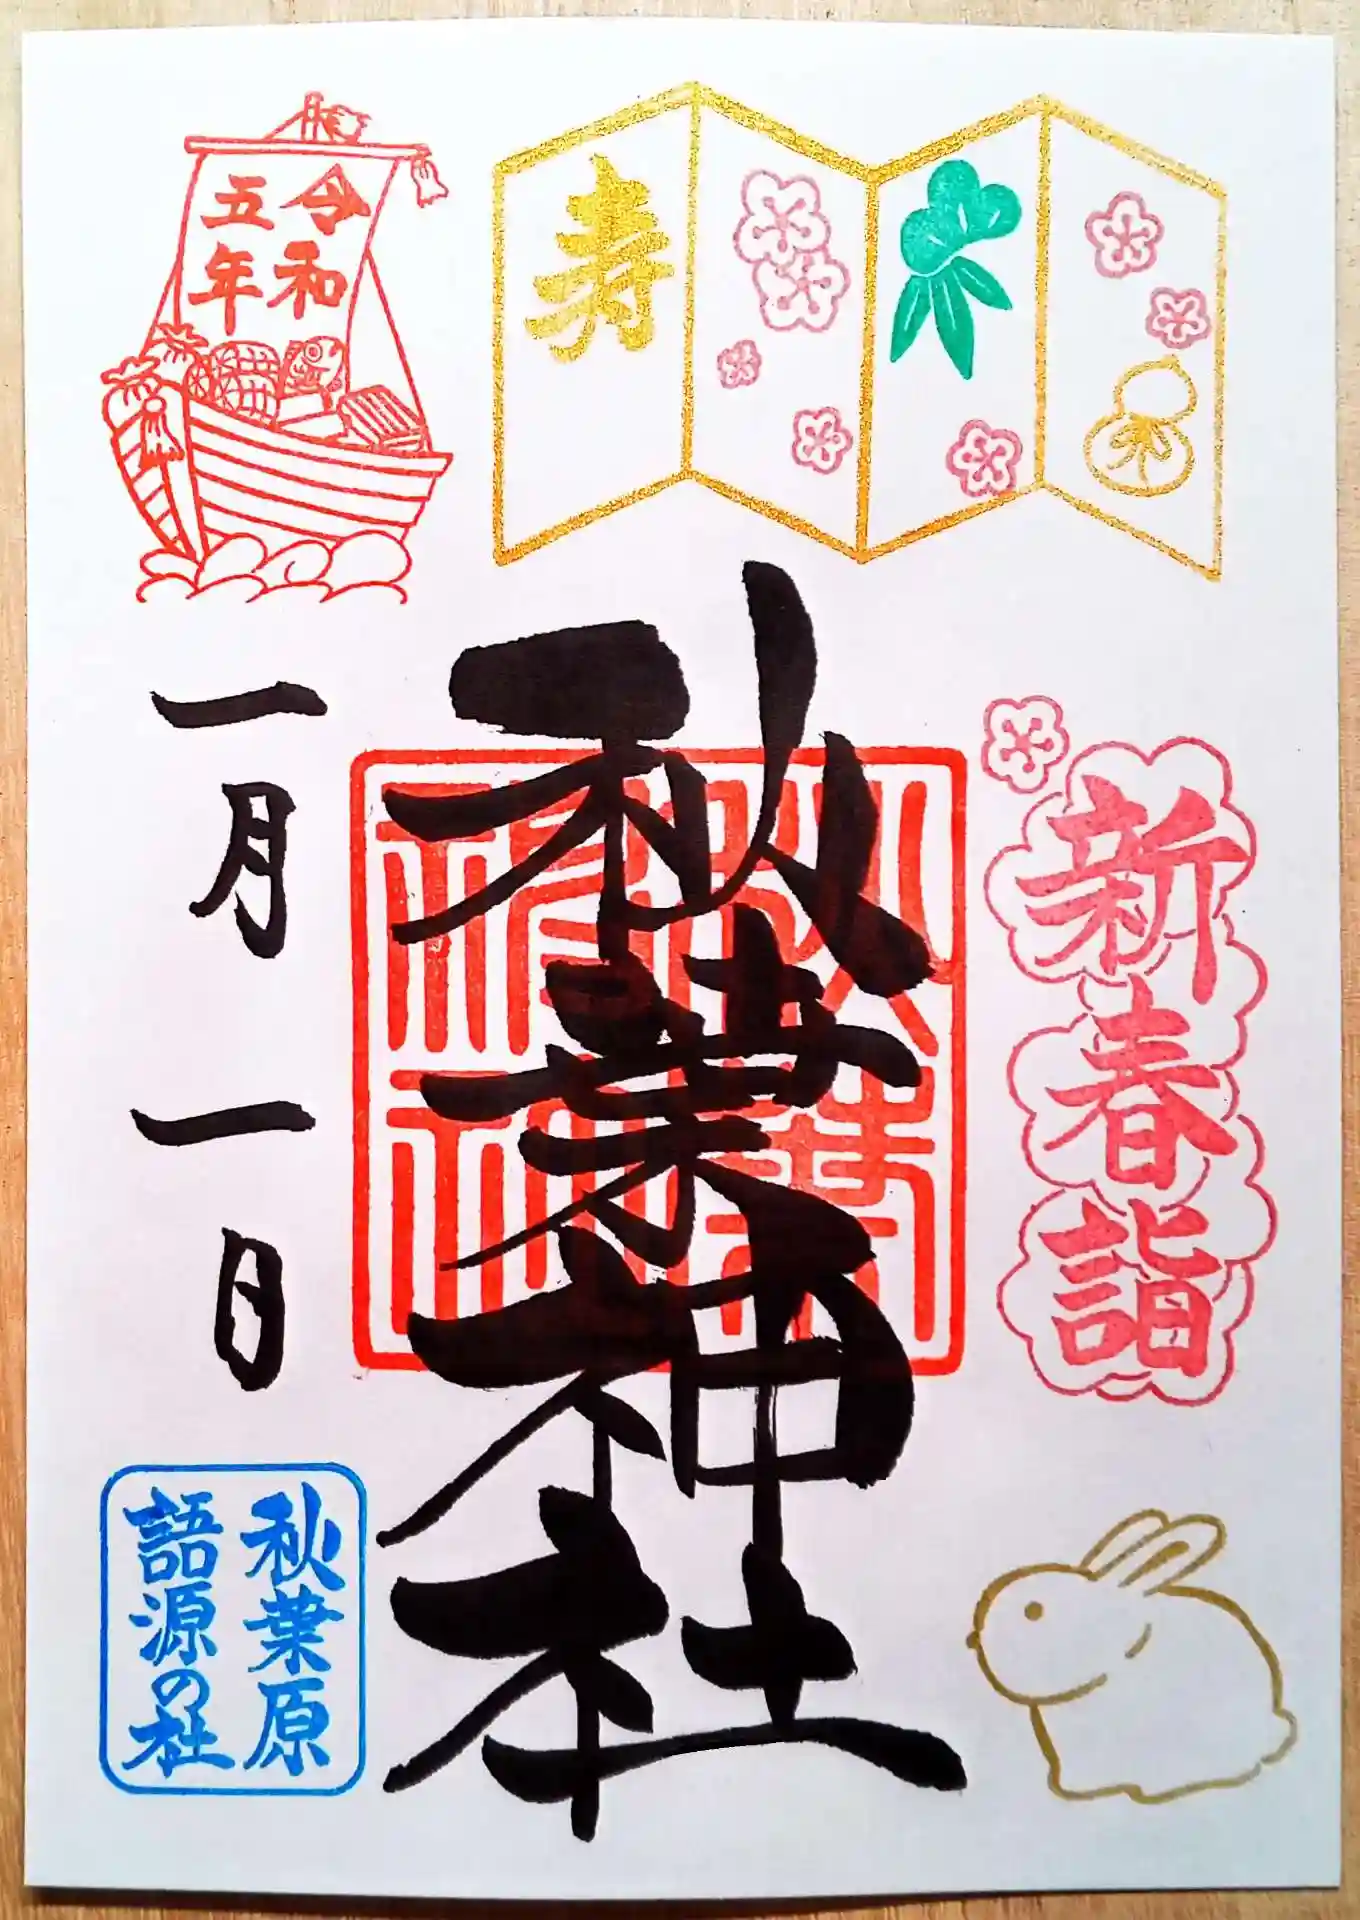 寿
令和
五年
新春詣
秋葉神社
秋葉
神社
一月一日
秋葉原
語源の社